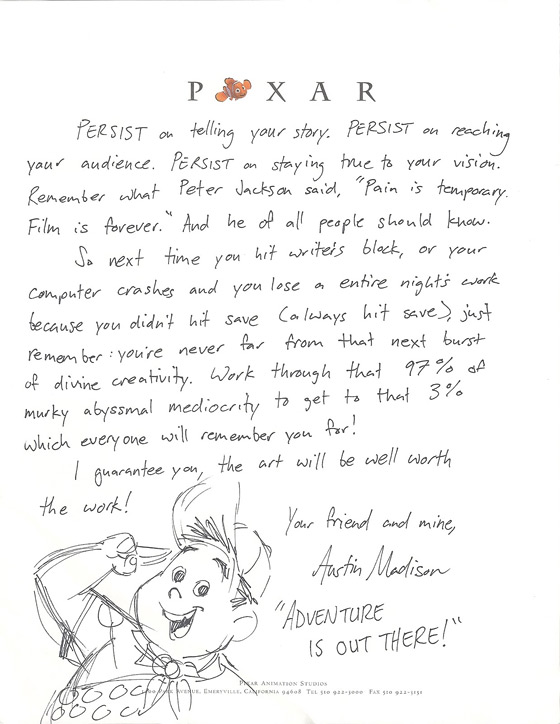 P XAR
PERSIST on telling your story. PERSIST on reaching
your audience. PERSIST on staying true to your vision.
Remember what Peter Jackson said, "Pain is temporary.
Film is forever." And he of all people should know.
So next time you hit writer's block, or your
computer crashes and you lose a entire night's work
because you didn't hit save (always hit save), just
remember: you're never far from that next burst
of divine creativity. Work through that 97% of
murky abyssmal mediocrity to get to that 3%
which everyone will remember you for!
I guarantee you, the art will be well worth
the work!
Your friend and mine,
Austin Madison
"ADVENTURE
IS OUT THERE!"
PIXAR ANIMATION STUDIOS
PARK AVENUE, EMERYVILLE, CALIFORNIA 94608 TEL 510 922-3000 FAX 510 922-3151